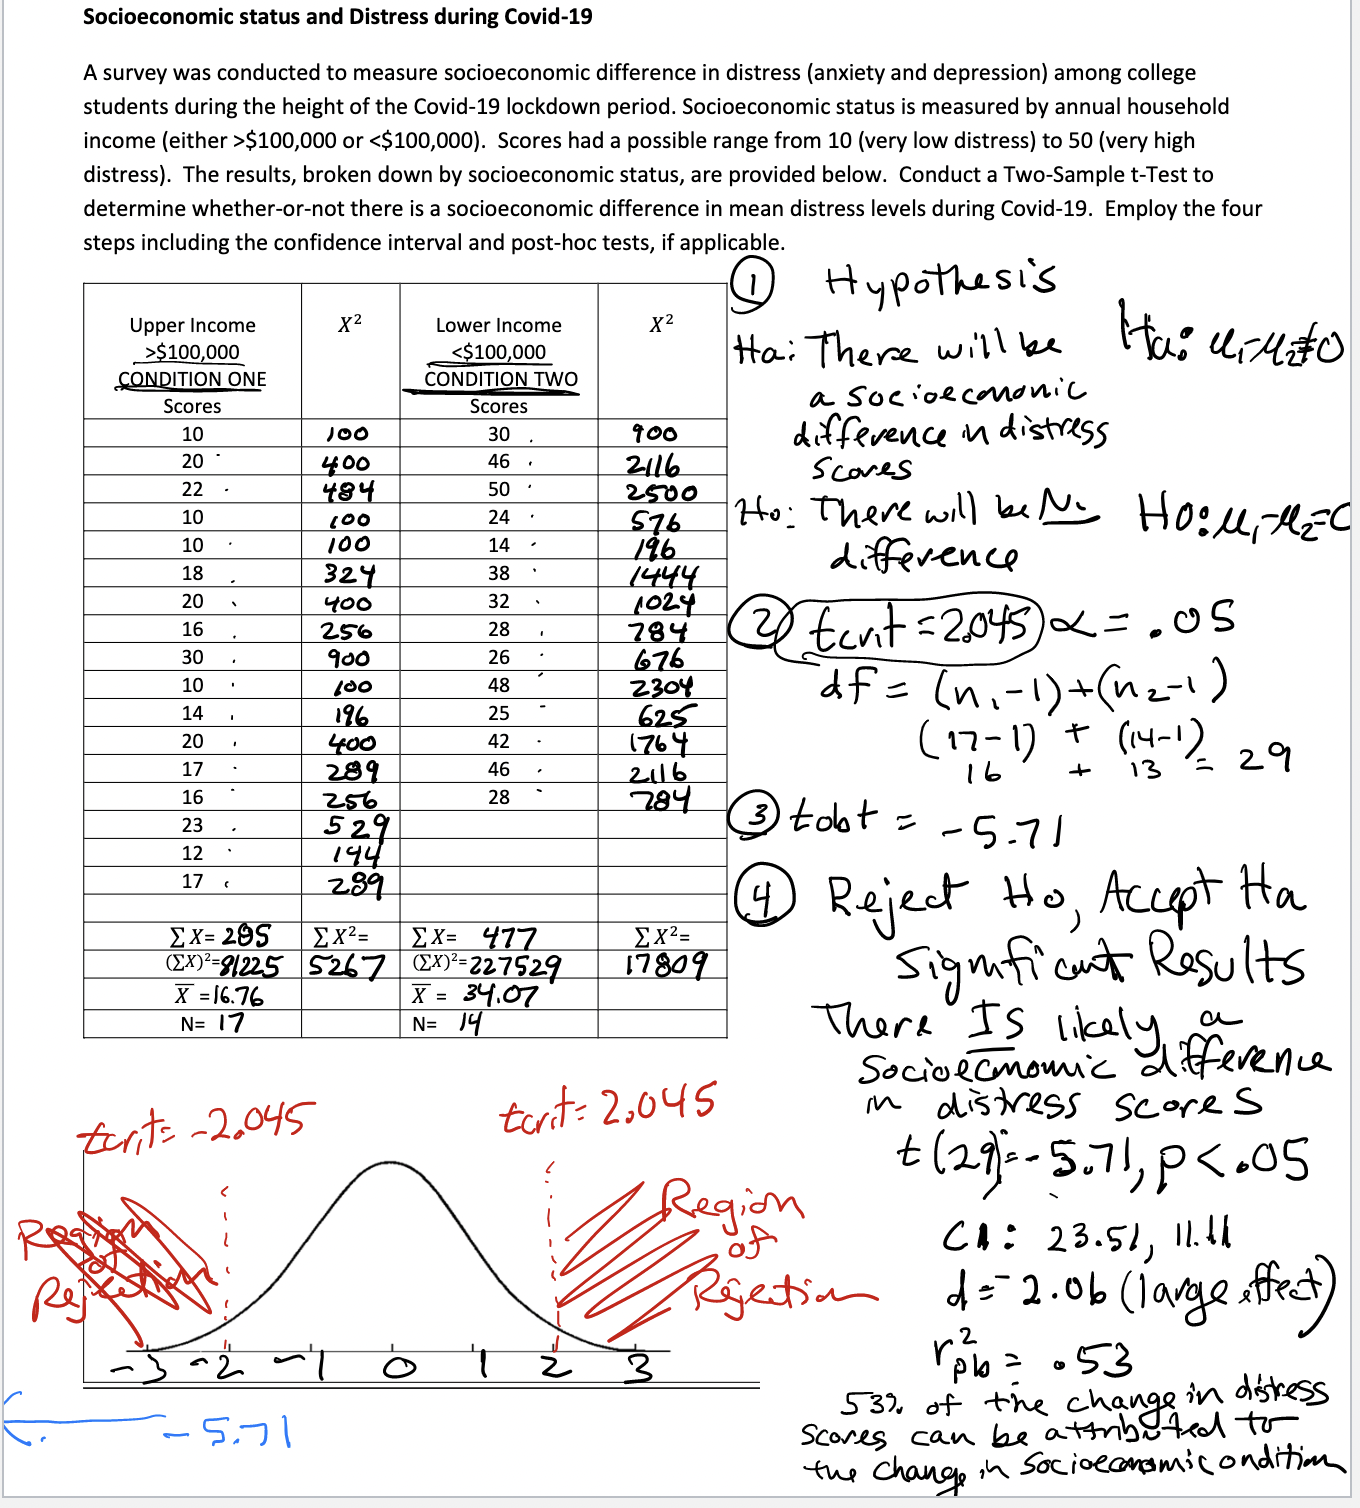 Socioeconomic status and Distress during Covid-19
A survey was conducted to measure socioeconomic difference in distress (anxiety and depression) among college
students during the height of the Covid-19 lockdown period. Socioeconomic status is measured by annual household
income (either >$100,000 or <$100,000).  Scores had a possible range from 10 (very low distress) to 50 (very high
distress).  The results, broken down by socioeconomic status, are provided below.  Conduct a Two-Sample t-Test to
determine whether-or-not there is a socioeconomic difference in mean distress levels during Covid-19.  Employ the four
steps including the confidence interval and post-hoc tests, if applicable.
Upper Income X² Lower Income X²
>$100,000 <$100,000
CONDITION ONE CONDITION TWO
Scores Scores
10 100 30 900
20 400 46 2116
22 484 50 2500
10 100 24 576
10 100 14 196
18 324 38 1444
20 400 32 1024
16 256 28 784
30 900 26 676
10 100 48 2304
14 196 25 625
20 400 42 1764
17 289 46 2116
16 256 28 784
23 529
12 144
17 289
∑X= 285 ∑X²= ∑X= 477 ∑X²=
(∑X)²=81225 5267 (∑X)²=227529 17809
X̅ =16.76 X̅ = 34.07
N= 17 N= 14
① Hypothesis
Ha: There will be Ha: μ₁-μ₂≠0
a socioeconomic
difference in distress
scores
Ho: There will be No H0: μ₁-μ₂=0
difference
② tcrit = 2.045 α = .05
df = (n₁-1)+(n₂-1)
(17-1) + (14-1) = 29
16 + 13
③ tobt = -5.71
④ Reject Ho, Accept Ha
Significant Results
There IS likely a
Socioeconomic difference
in distress scores
t(29)=-5.71, p<.05
CI: 23.51, 11.11
d=-2.06 (large effect)
r²pb = .53
53% of the change in distress
scores can be attributed to
the change in socioeconomic condition
tcrit= -2.045
tcrit= 2.045
Region
of
Rejection
Region
of
Rejection
-3 -2 -1 0 1 2 3
-5.71